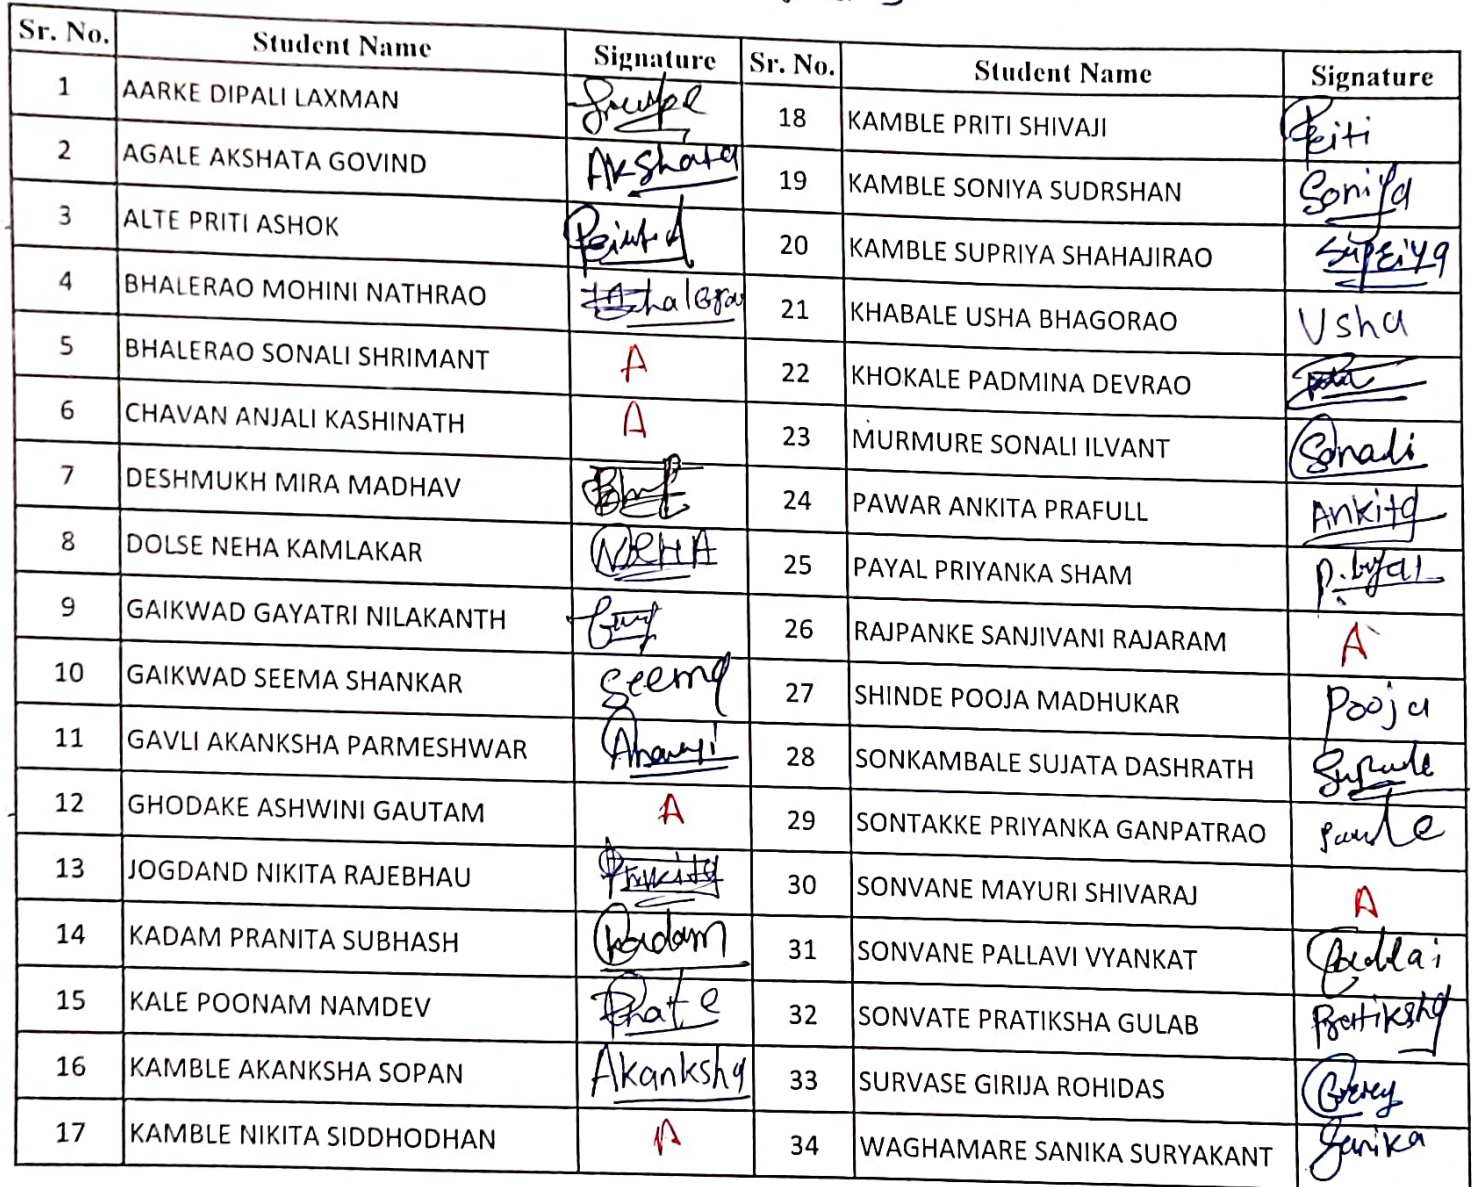 Sr. No. Student Name Signature Sr. No. Student Name Signature
1 AARKE DIPALI LAXMAN 18 KAMBLE PRITI SHIVAJI Priti
2 AGALE AKSHATA GOVIND Akshata 19 KAMBLE SONIYA SUDRSHAN Soniya
3 ALTE PRITI ASHOK 20 KAMBLE SUPRIYA SHAHAJIRAO Supriya
4 BHALERAO MOHINI NATHRAO 21 KHABALE USHA BHAGORAO Usha
5 BHALERAO SONALI SHRIMANT A 22 KHOKALE PADMINA DEVRAO
6 CHAVAN ANJALI KASHINATH A 23 MURMURE SONALI ILVANT Sonali
7 DESHMUKH MIRA MADHAV 24 PAWAR ANKITA PRAFULL Ankita
8 DOLSE NEHA KAMLAKAR NEHA 25 PAYAL PRIYANKA SHAM
9 GAIKWAD GAYATRI NILAKANTH 26 RAJPANKE SANJIVANI RAJARAM A
10 GAIKWAD SEEMA SHANKAR Seema 27 SHINDE POOJA MADHUKAR Pooja
11 GAVLI AKANKSHA PARMESHWAR 28 SONKAMBALE SUJATA DASHRATH
12 GHODAKE ASHWINI GAUTAM A 29 SONTAKKE PRIYANKA GANPATRAO
13 JOGDAND NIKITA RAJEBHAU 30 SONVANE MAYURI SHIVARAJ A
14 KADAM PRANITA SUBHASH Kadam 31 SONVANE PALLAVI VYANKAT
15 KALE POONAM NAMDEV 32 SONVATE PRATIKSHA GULAB Pratiksha
16 KAMBLE AKANKSHA SOPAN Akanksha 33 SURVASE GIRIJA ROHIDAS
17 KAMBLE NIKITA SIDDHODHAN A 34 WAGHAMARE SANIKA SURYAKANT Sanika